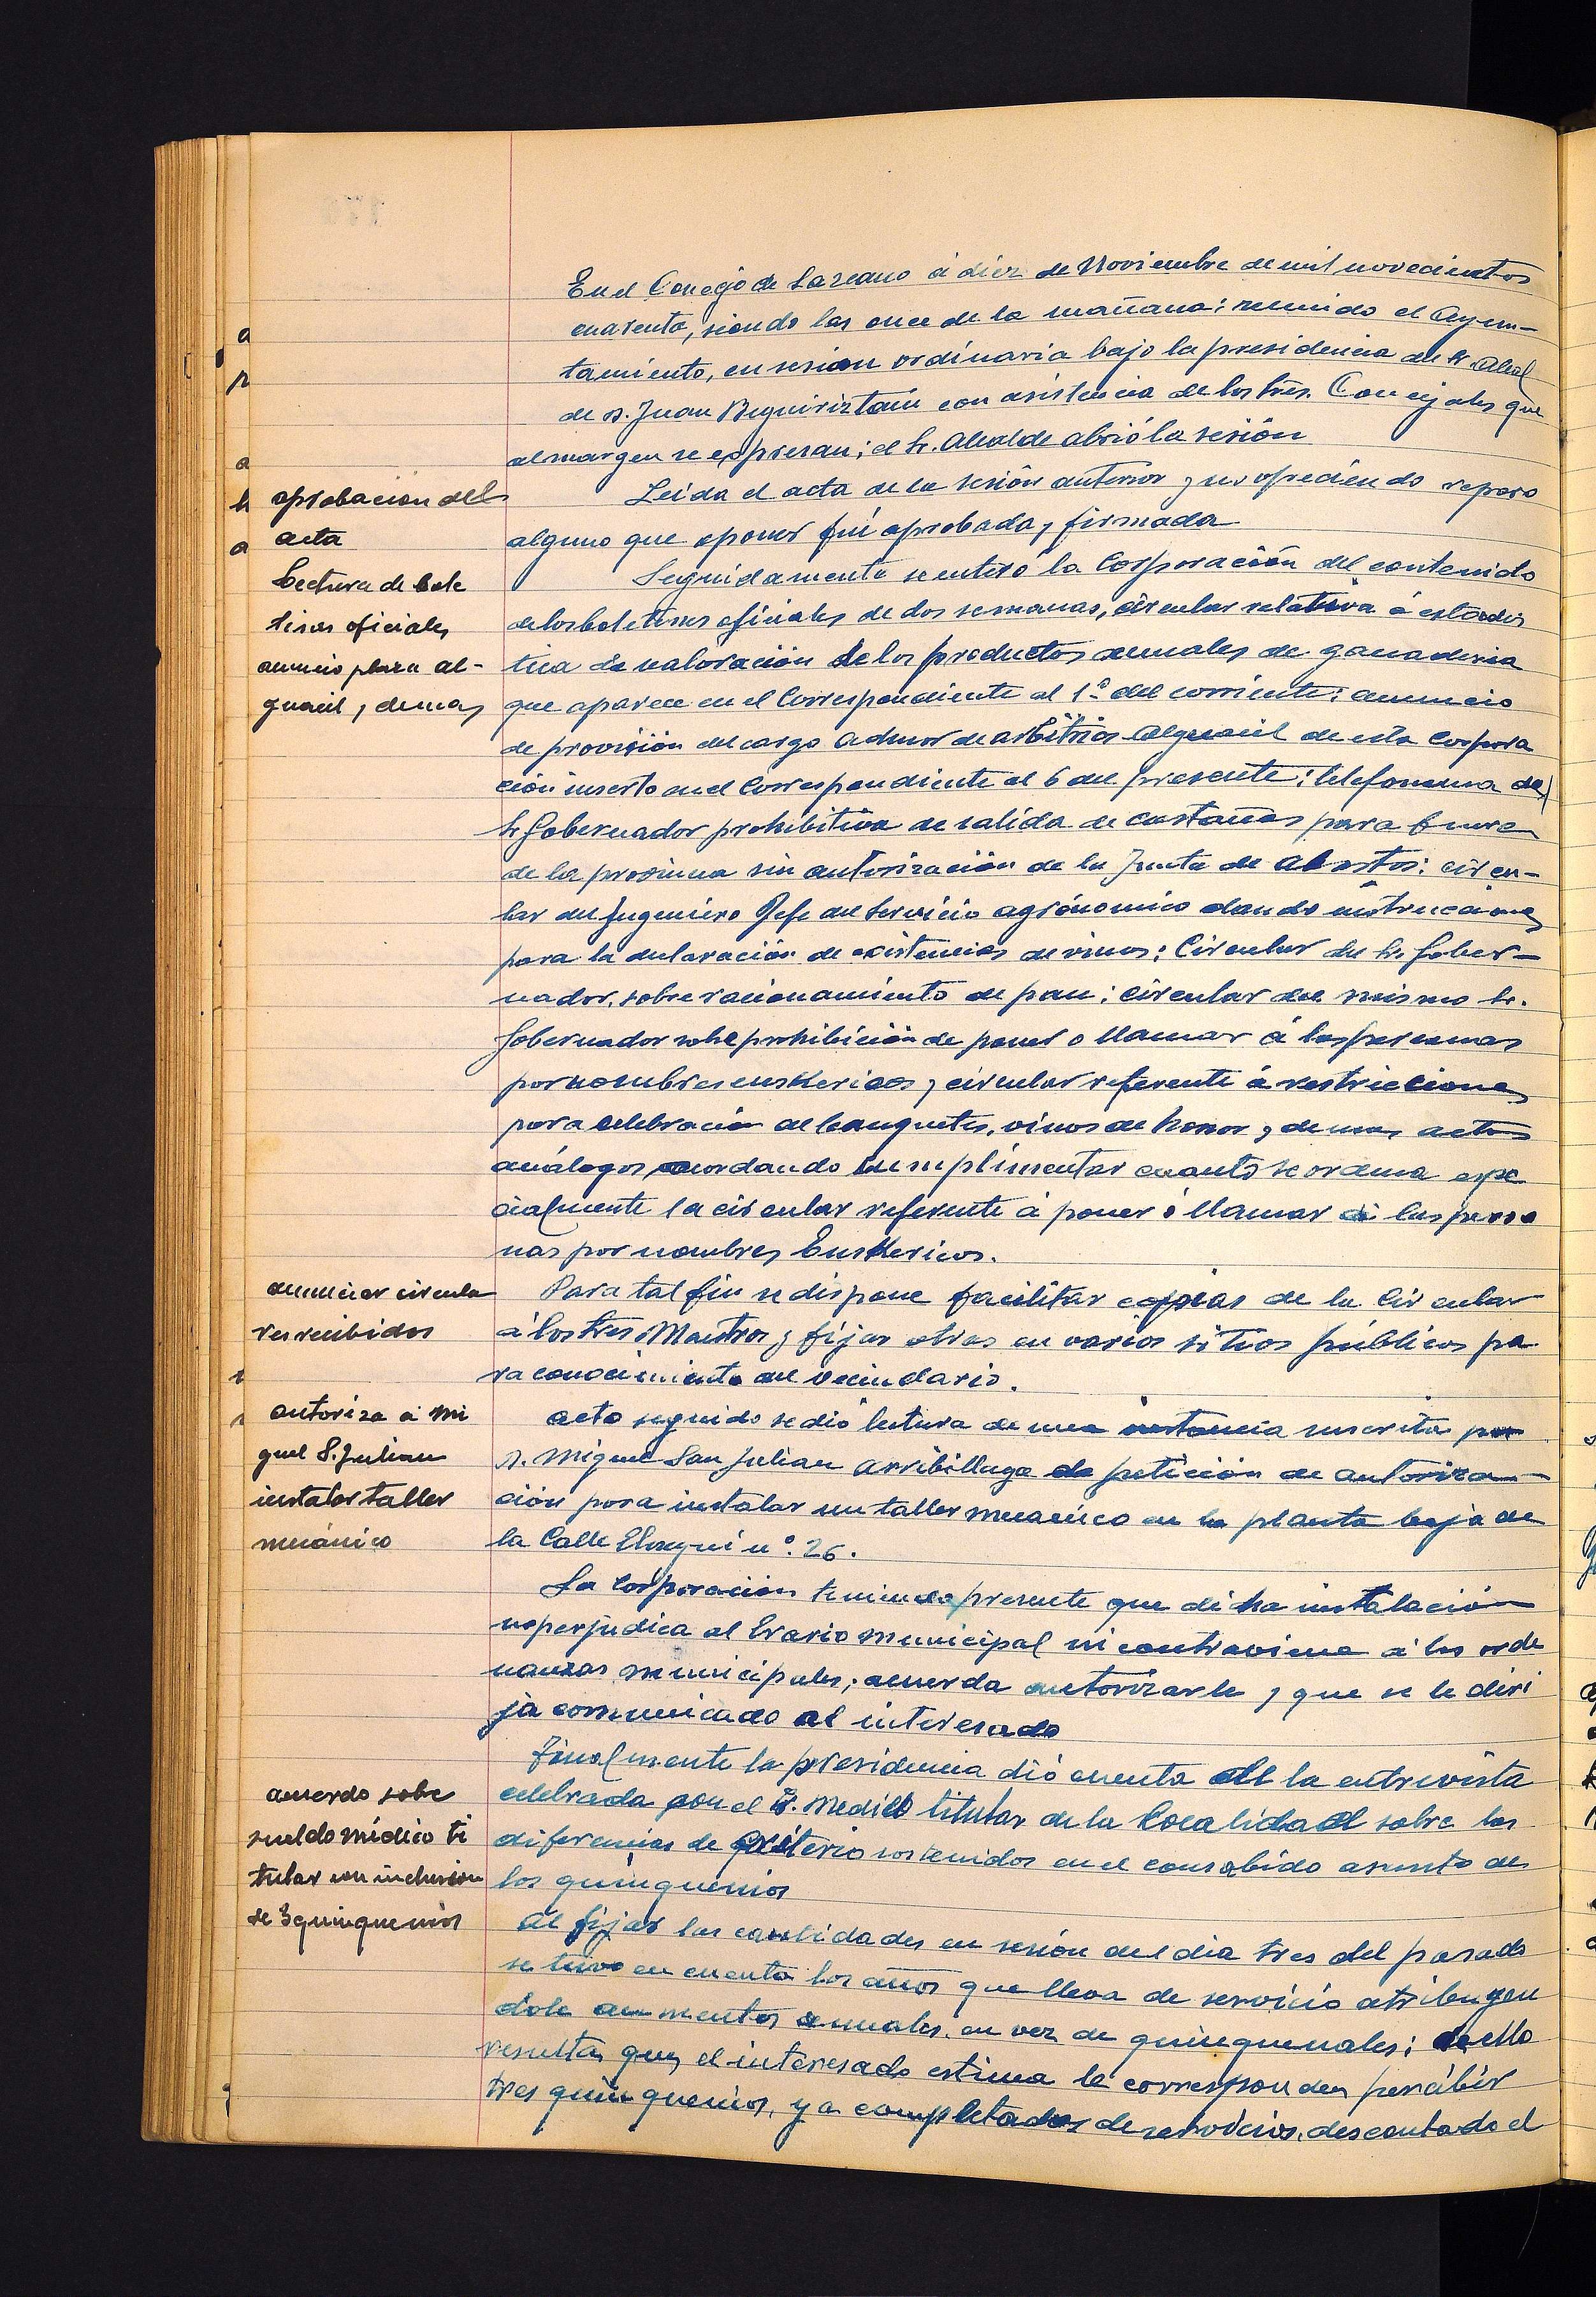 En el Concejo de Lazcano á diez de Noviembre de mil novecientos
cuarenta, siendo las once de la mañana: reunido el Ayun-
tamiento, en sesion ordinaria bajo la presidencia del Sr. Alcal
de D. Juan Beguiriztain con asistencia de los Sres. Concejales que
al margen se expresan; el Sr. Alcalde abrió la sesión
aprobacion del
acta
Leida el acta de la sesión anterior y no ofreciendo reparo
alguno que oponer fué aprobada y firmada
Lectura de bole
tines oficiales
anuncio plaza al-
guacil y demas
Seguidamente se enteró la Corporación del contenido
de los boletines oficiales de dos semanas, circular relativa á estadis
tica de valoración de los productos anuales de ganaderia
que aparece en el Correspondiente al 1º del corriente: anuncio
de provisión del cargo Admor de arbitrios Alguacil de esta Corpora
ción inserto en el Correspondiente al 6 del presente: telefonema del
Sr Gobernador prohibitiva de salida de castañas para fuera
de la provincia sin autorización de la Junta de Abastos: circu-
lar del Ingeniero Jefe del Servicio agrónomico dando instrucciones
para la declaración de existencias de vinos: Circular del Sr. Gober-
nador, sobre racionamiento de pan: circular del mismo Sr.
Gobernador sobre prohibición de poner o llamar á las personas
por nombres euskericos y circular referente á restricciones
para celebración de banquetes, vinos de honor y demas actos
análogos, acordando cumplimentar cuanto se ordena espe
cialmente la circular referente á poner ó llamar á las perso
nas por nombres Euskericos.
anunciar circula
res recibidas
Para tal fin se dispone facilitar copias de la Circular
á los tres Maestros y fijar otras en varios sitios públicos pa
ra conocimiento del Vecindario.
autoriza á Mi
guel S. Julian
instalar taller
mecánico
Acto seguido se dió lectura de una instancia suscrita por
D. Miguel San Julian Arribillaga de petición de autoriza-
ción para instalar un taller mecanico en la planta baja de
la Calle Elosegui nº. 26.
La Corporación teniendo presente que dicha instalación
no perjudica al Erario municipal ni contraviene á las orde
nanzas municipales; acuerda autorizarle y que se le diri
ja comunicado al interesado
acuerdo sobre
sueldo médico ti
tular con inclusion
de 3 quinquenios
Finalmente la presidencia dió cuenta de la entrevista
celebrada con el Sr. Medico titular de la Localidad sobre las
diferencias de criterio sostenidos en el consabido asunto de
los quinquenios
Al fijar las cantidades en sesión del dia tres del pasado
se tuvo en cuenta los años que lleva de servicio atribuyen
dole aumentos anuales, en vez de quinquenales; de ello
resulta, que, el interesado estima le corresponden percibir
tres quinquenios, ya completados de servicios, descontado el